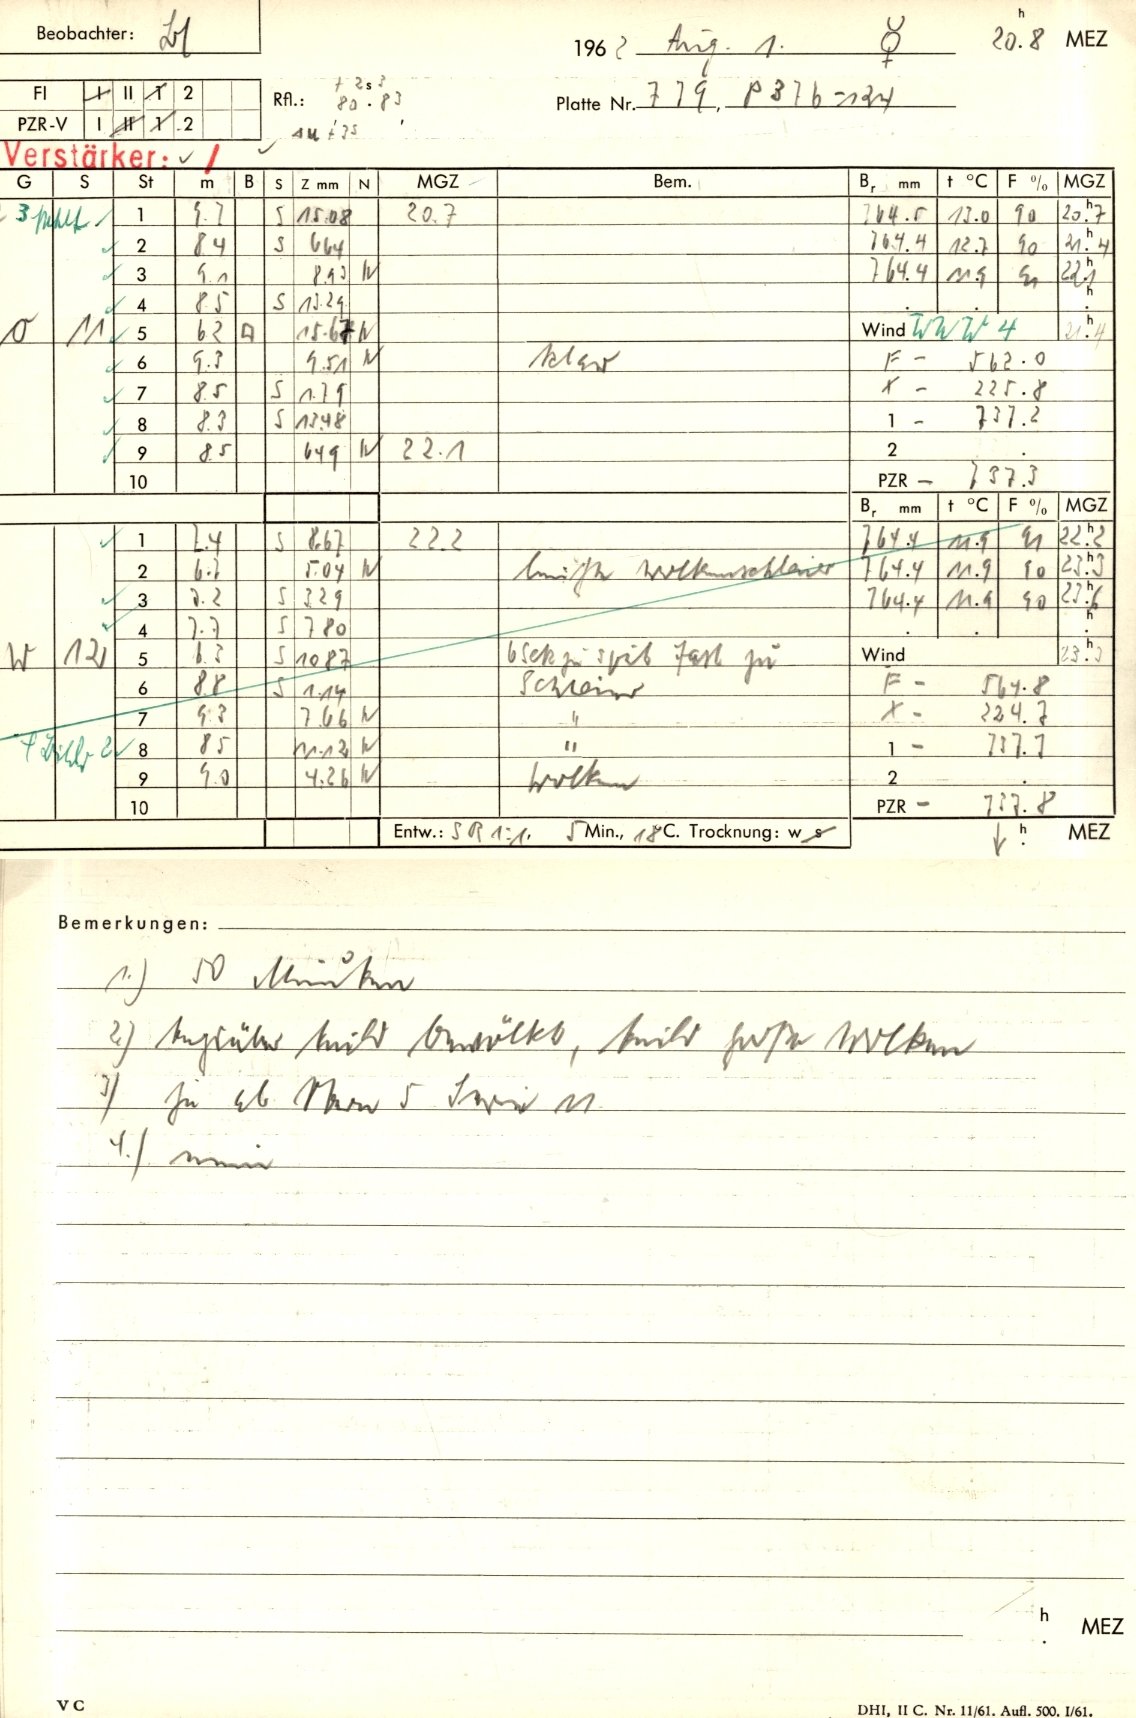 Beobachter:
1962 Aug. 1. ☿ 20.8 h MEZ
FI I II 1 2
Rfl.: 80.83
Platte Nr. 779, P376
PZR-V I II 1 2
Verstärker: ✓ /
G S St m B S Z mm N MGZ Bem. Br mm t °C F % MGZ
1 9.7 S 15.08 20.7 764.5 13.0 90 20.7 h
✓ 2 8.4 S 664 764.4 12.7 90 21.4 h
✓ 3 9.1 8.93 N 764.4 11.9 91 22.1 h
✓ 4 8.5 S 13.29 . . h .
O 11 ✓ 5 62 15.67 N Wind WNW 4 21.4 h
✓ 6 9.3 9.51 N klar F - 562.0
✓ 7 8.5 S 1.79 X - 225.8
✓ 8 8.3 S 1348 1 - 737.2
✓ 9 85 649 N 22.1 2 .
10 PZR - 737.3
Br mm t °C F % MGZ
✓ 1 7.4 S 8.67 22.2 764.4 11.9 91 22.2 h
2 6.7 5.04 N Wolkenschleier 764.4 11.9 90 23.3 h
✓ 3 7.2 S 329 764.4 11.9 90 23.6 h
✓ 4 7.7 S 780 . . h .
W 12 5 6.3 S 1087 6 Sek zu spät Wind 23.3 h
6 8.8 S 1.14 Schleier F - 564.8
7 9.3 7.66 N " X - 224.7
✓ 8 85 11.12 N " 1 - 737.7
9 9.0 4.26 N Wolken 2 .
10 PZR - 737.8
Entw.: SR 1:1, 5 Min., 18 C. Trocknung: w s ↓ h . MEZ
Bemerkungen:
1.) 50 Minuten
2.) tagsüber bewölkt, Wolken
3) ab Stern 5 Serie 11
4.) nein
h . MEZ
V C
DHI, II C. Nr. 11/61. Aufl. 500. I/61.